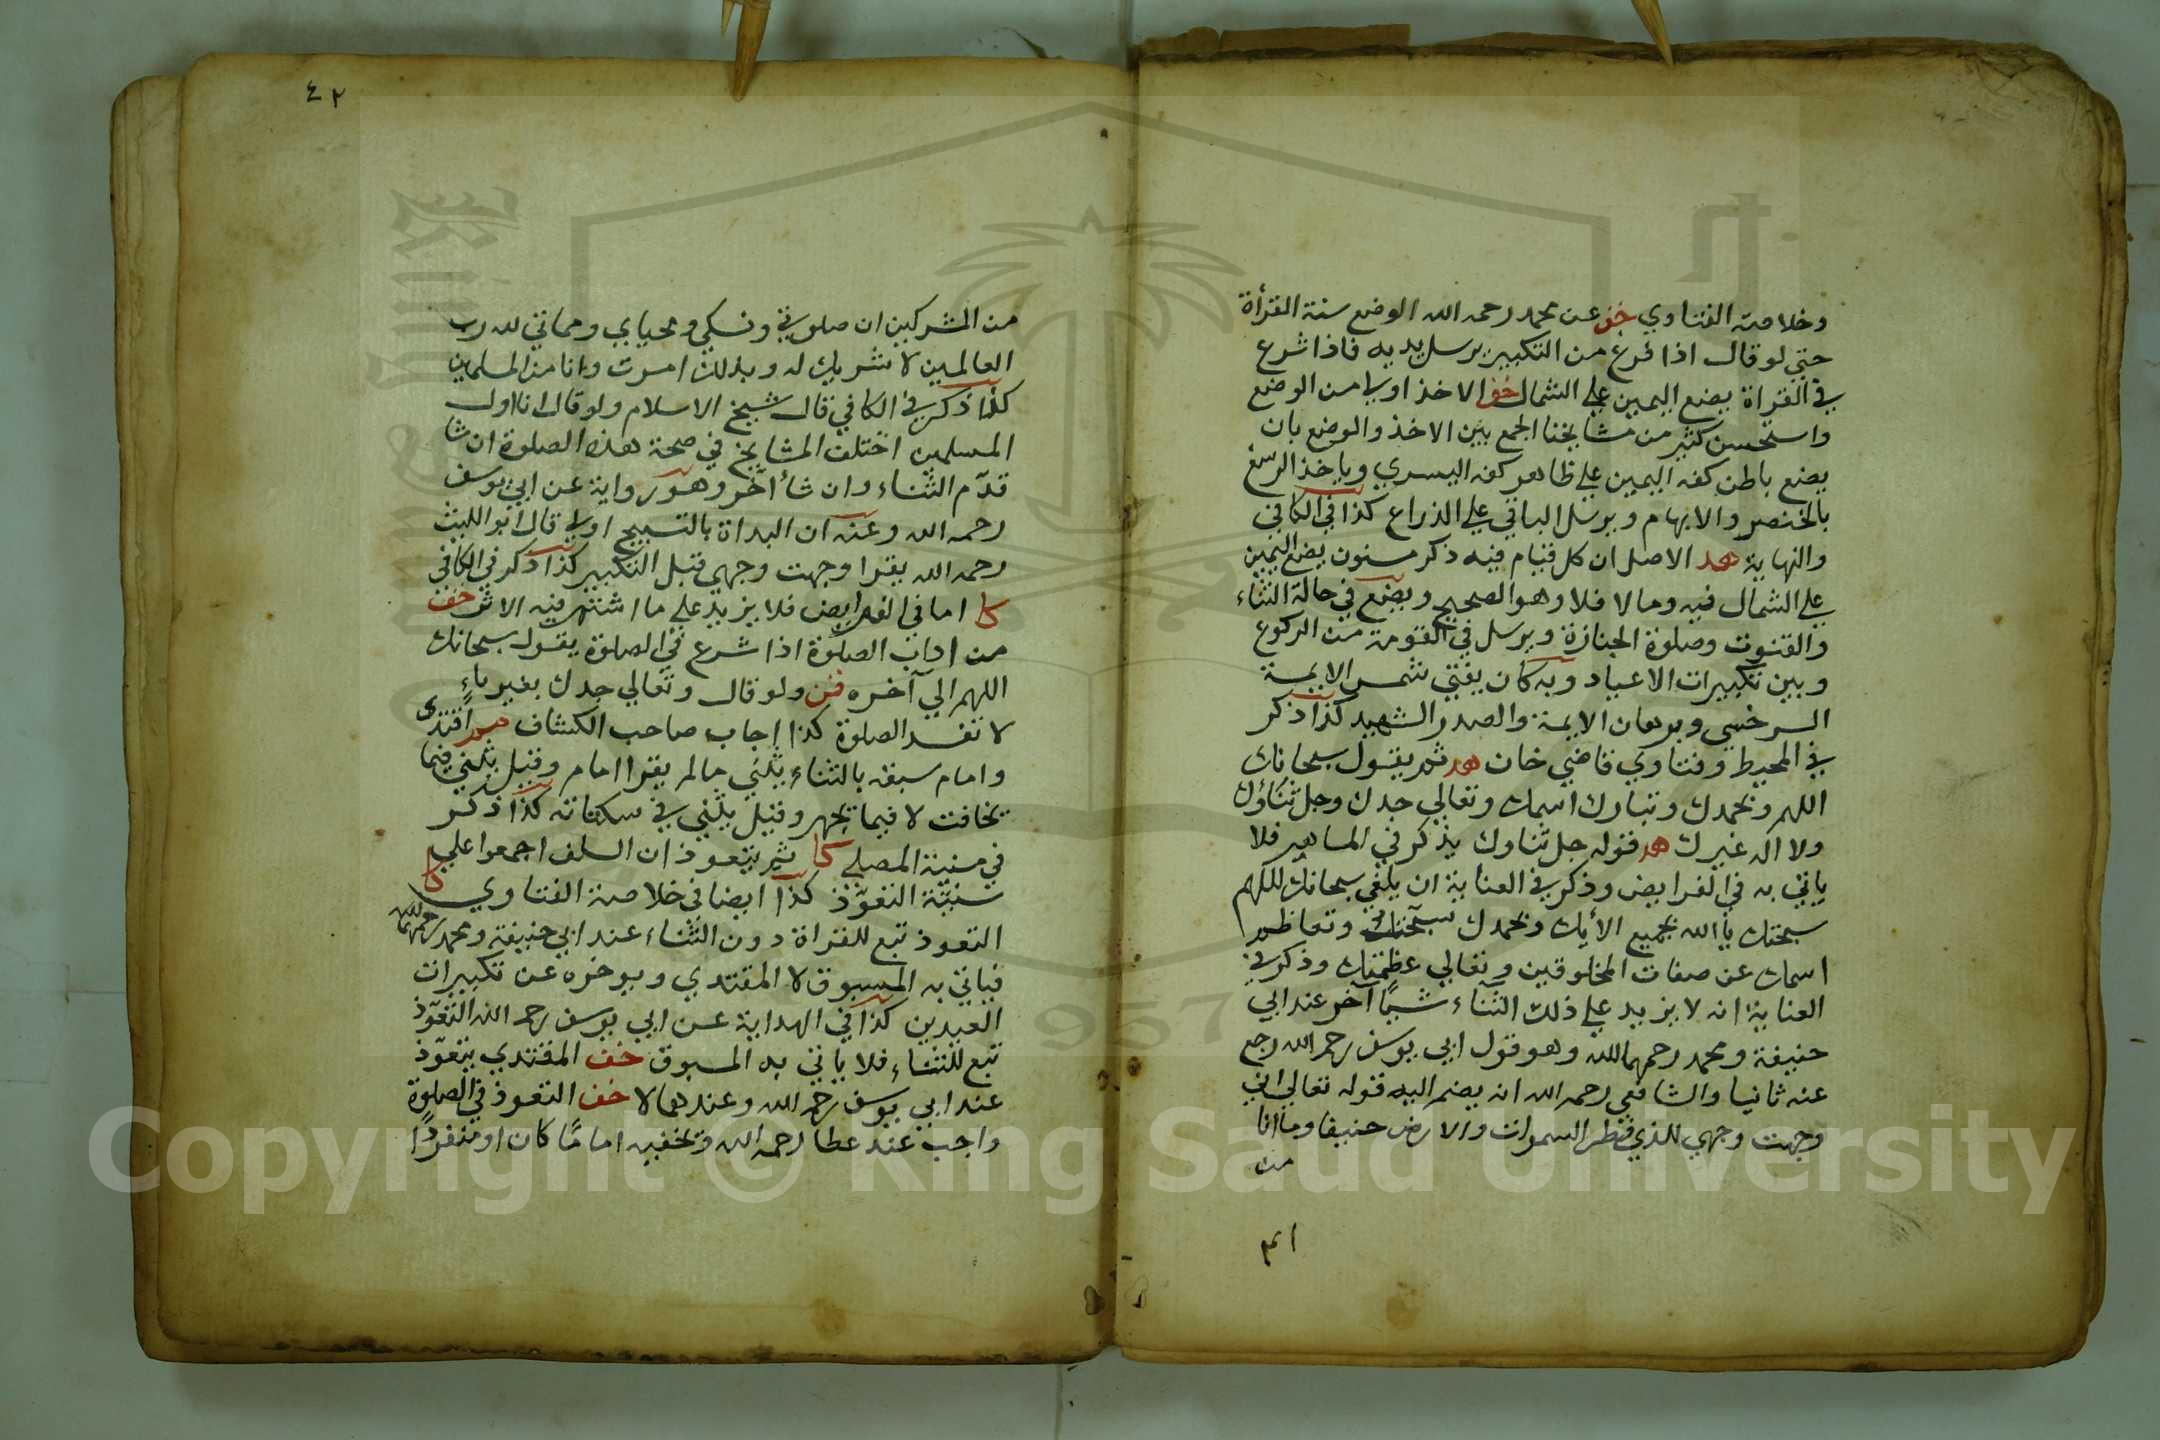 وخلاصة الفتاوي خف عن محمد رحمه الله الوضع سنة القرأة
حتي لو قال اذا فرغ من التكبير يرسل يديه فاذا شرع
في القراة يضع اليمين علي الشمال خف الاخذ اولي من الوضع
واستحسن كثير من مشايخنا الجمع بين الاخذ والوضع بان
يضع باطن كفه اليمين علي ظاهر كفه اليسري وياخذ الرسغ
بالخنصر والابهام ويرسل الباقي علي الذراع كذا في الكافي
والنهاية هد الاصل ان كل قيام فيه ذكر مسنون يضع اليمين
علي الشمال فيه وما لا فلا وهو الصحيح ويضع في حالة الثناء
والقنوت وصلوة الجنازة ويرسل في القومة من الركوع
وبين تكبيرات الاعياد وبه كان يفتي شمس الايمة
السرخسي وبرهان الايمة والصدر الشهيد كذا ذكر
في المحيط وفتاوي قاضي خان هد ثم يقول سبحانك
اللهم وبحمدك وتبارك اسمك وتعالي جدك وجل ثناؤك
ولا اله غيرك هد قوله جل ثناوك يذكر في المساهير فلا
ياتي به في الفرايض وذكر في العناية ان يلغي سبحانك اللهم
سبحتك يا الله بجميع الأيك وبحمدك سبحتك وتعاظم
اسمك عن صفات المخلوقين وتعالي عظمتك وذكر في
العناية انه لا يزيد علي ذلك الثناء شيئا آخر عند ابي
حنيفة ومحمد رحمهما الله وهو قول ابي يوسف رحمه الله رجع
عنه ثانيا والشافعي رحمه الله ان يضم اليه قوله تعالي اني
وجهت وجهي للذي فطر السموات والارض حنيفا وما انا
من
٤١
٤٢
من المشركين ان صلوتي ونسكي ومحياي ومماتي لله رب
العالمين لا شريك له وبذلك امرت وانا من المسلمين
كذا ذكر في الكافي قال شيخ الاسلام ولو قال انا اول
المسلمين اختلف المشايخ في صحة هذه الصلوة ان شا
قدّم الثناء وان شأ آخر وهو رواية عن ابي يوسف
رحمه الله وعنه ان البداة بالتسبيح اولي قال ابو الليث
رحمه الله يقرا وجهت وجهي قبل التكبير كذا ذكر في الكافي
كا اما في الفرايض فلا يزيد علي ما اشتهر فيه الاثر خف
من اداب الصلوة اذا شرع في الصلوة يقول سبحانك
اللهم الي آخره قن ولو قال وتعالي جدك بغير ياءٍ
لا تفسد الصلوة كذا اجاب صاحب الكشاف اقتدى
وامام سبقه بالثناء يثني مالم يقرا امام وقيل يثني فيما
يخافت لا فيما يجهر وقيل يثني في سكتاته كذا ذكر
في منية المصلي كا ثم يتعوذ ان السلف اجمعوا علي
سنيّة التعوّذ كذا ايضا في خلاصة الفتاوي كا
التعوذ تبع للقراة دون الثناء عند ابي حنيفة ومحمد رحمهما الله
فياتي به المسبوق لا المقتدي ويوخره عن تكبيرات
العيدين كذا في الهداية عن ابي يوسف رحمه الله التعوّذ
تبع للثناء فلا ياتي به المسبوق خف المقتدي يتعوّذ
عند ابي يوسف رحمه الله وعندهما لا خف التعوذ في الصلوة
واجب عند عطا رحمه الله ويخفيه اماما كان او منفردًا
Copyright © King Saud University
1957